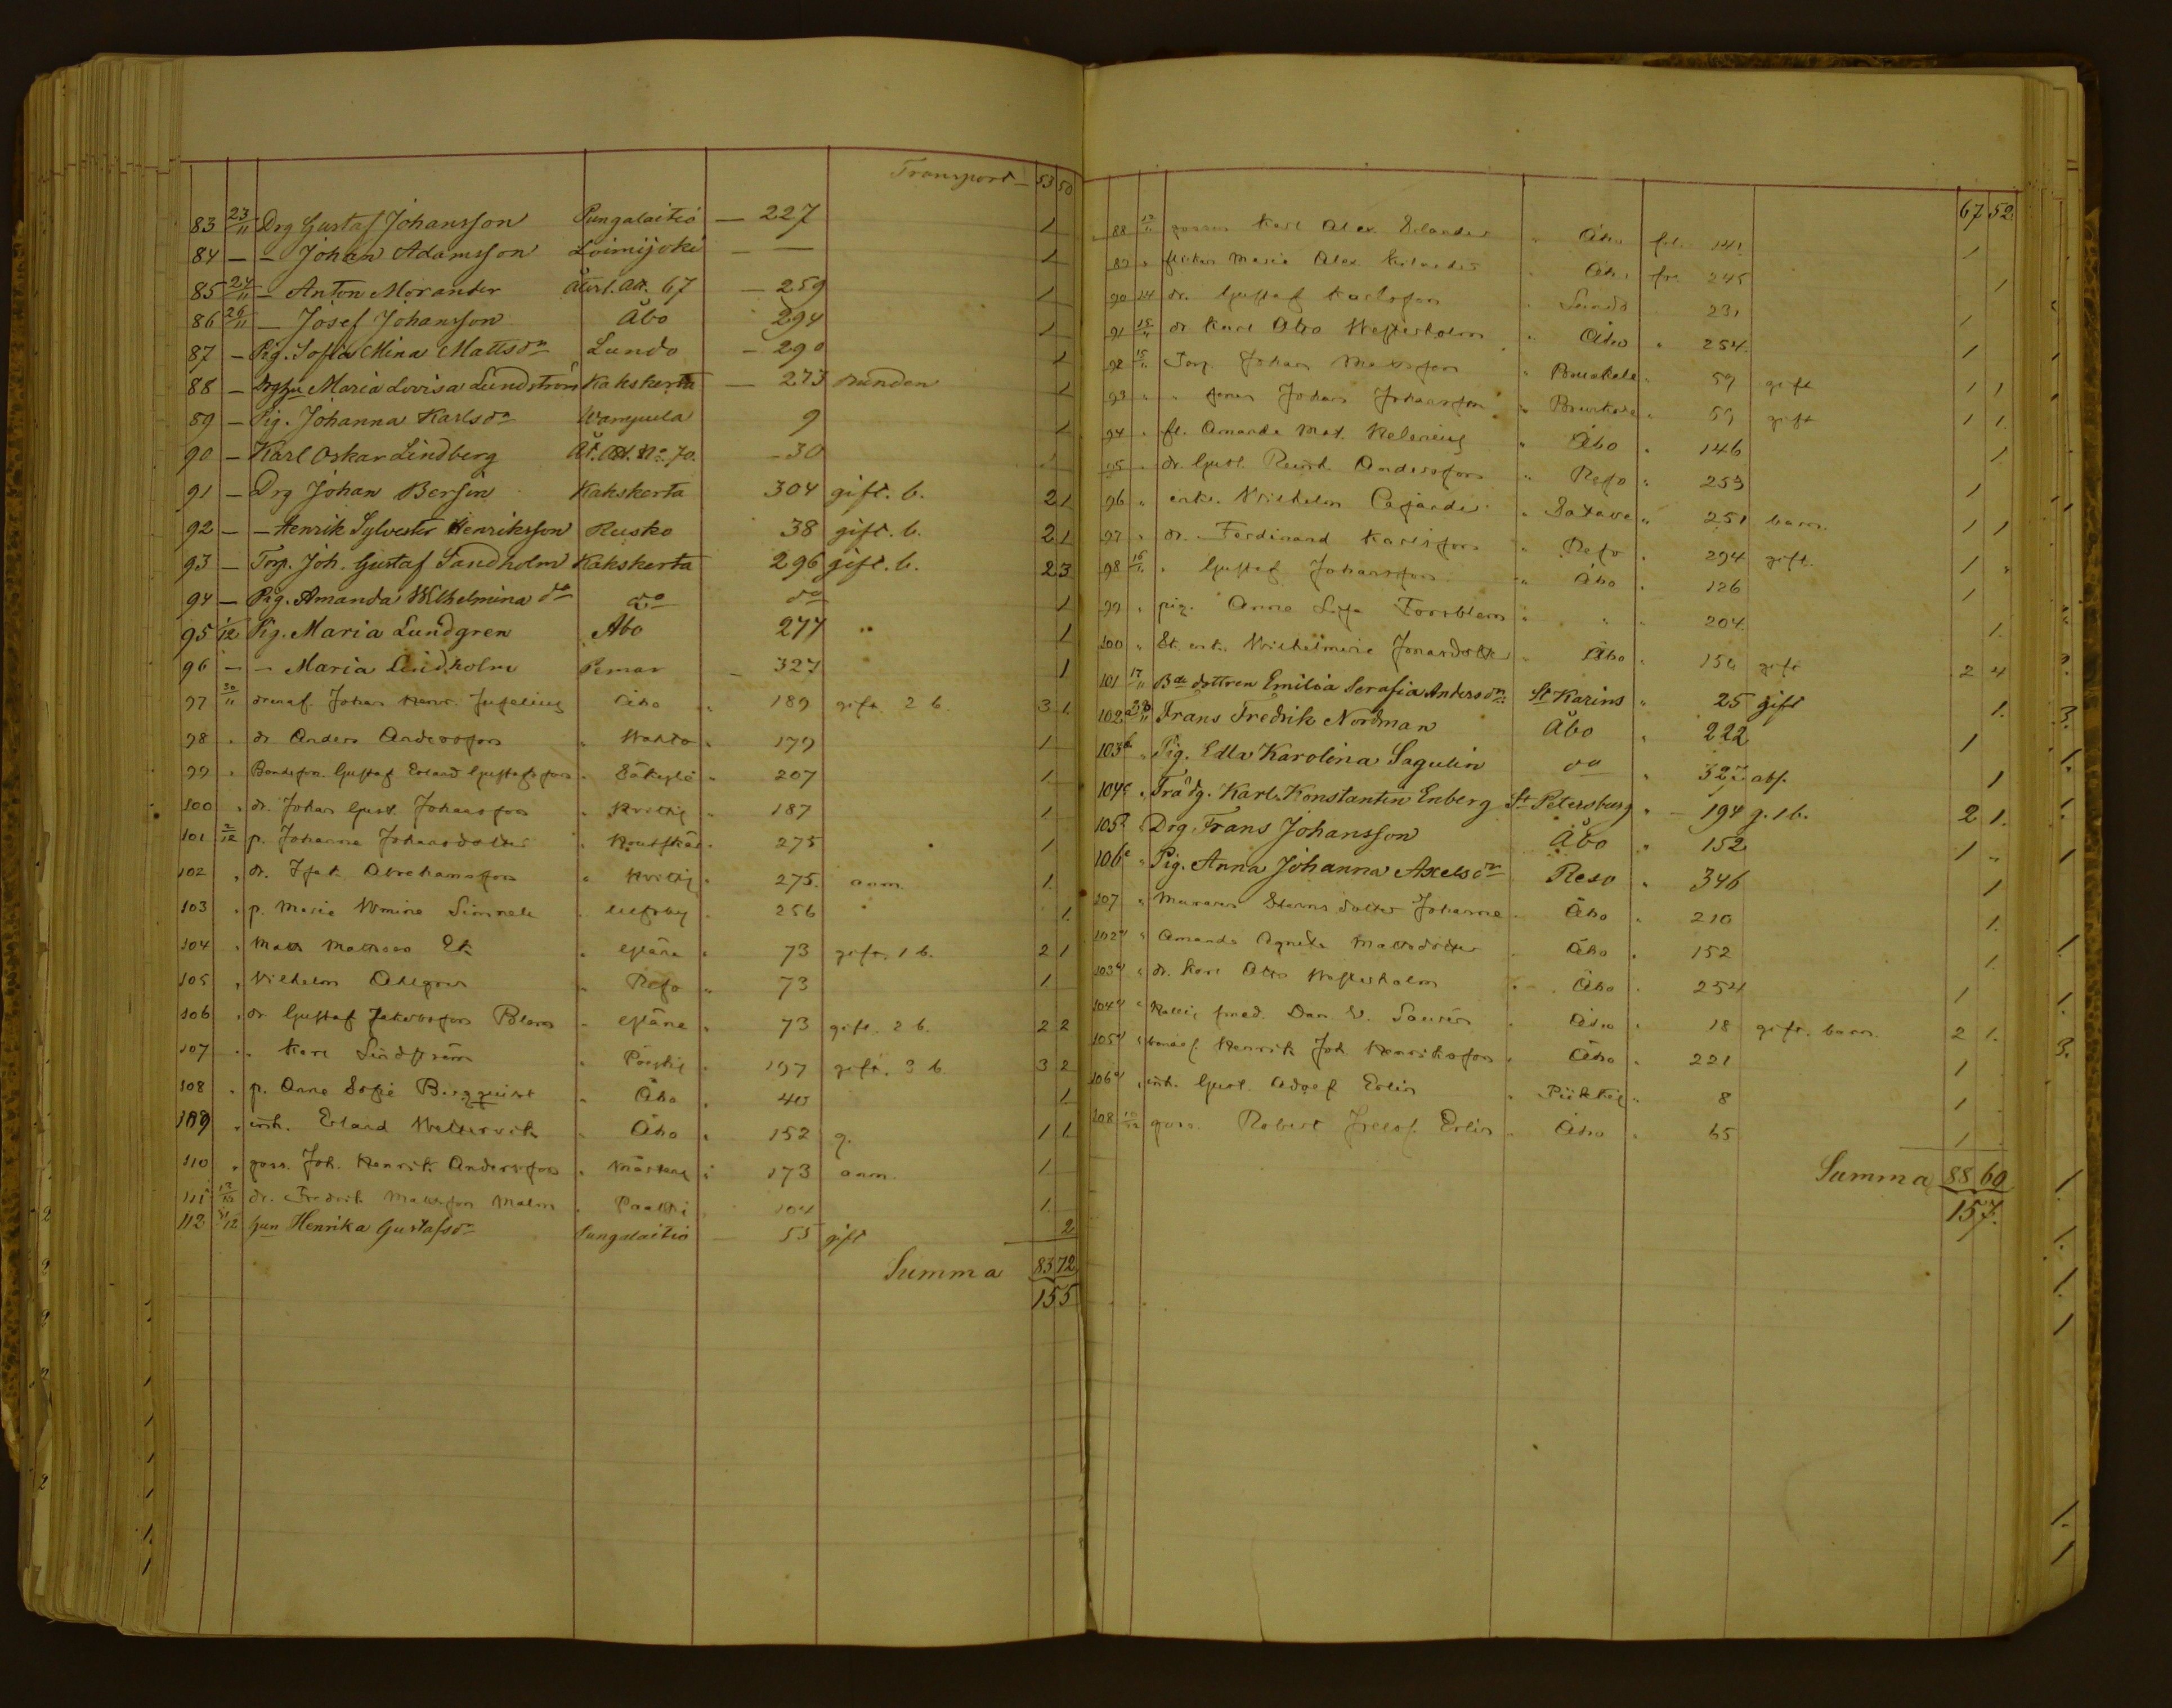 Transport — 53 50
83 23/11 Drg Gustaf Johansson Pungalaitio — 227 1
84 — — Johan Adamsson Loimijoki — — 1
85 24/11 — Anton Morander Att. 67 — 259 1
86 26/11 — Josef Johansson Åbo 294 1
87 — Pig. Sofia Mina Mattsdr Lundo — 290 1
88 — Maria Lovisa Lundström Kakskerta — 273 1
89 — Pig. Johanna Karlsdr Wampula 9 1
90 — Karl Oskar Lindberg No 70. — 30 1
91 — Drg Johan Bersén Kakskerta 304 gift. b. 2 1
92 — — Henrik Sylvester Henriksson Rusko 38 gift. b. 2 1
93 — Torp. Joh. Gustaf Sandholm Kakskerta 296 gift. b. 2 3
94 — Pig. Amanda Wilhelmina do do do 1
95 1/12 Pig. Maria Lundgren Åbo 277 1
96 — — Maria Lindholm Pemar — 327 1
97 30/11 Johan Henr. Juselius Åbo " 189 gift 2 b. 3 1
98 " dr Anders Andersson " Wahto " 179 1
99 " Bondeson. Gustaf Erland Gustafsson " Säkylä " 207 1
100 " dr. Johan Gust. Johansson " 187 1
101 2/12 p. Johanna Johansdotter " Houtskär " 275 1
102 " dr. Isak Abrahamsson " 275. anm. 1.
103 " p. Maria Wmina Simnele " Ulfsby " 256 1.
104 " Matts Mattsson Ek " 73 gift. 1 b. 2 1
105 " Wilhelm Ahlgren " Reso " 73 1
106 " dr Gustaf Jakobsson Blom " 73 gift. 2 b. 2 2
107 " " Karl Lindström " 197 gift. 3 b. 3 2
108 " p. Anna Sofia Bergquist " Åbo " 40 1
109 " inh. Erland Westervik " Åbo " 152 g. 1 1
110 " goss. Joh. Henrik Andersson " " 173 anm. 1
111 12/12 dr. Fredrik Mattsson Malm " 104 1.
112 31/12 Henrika Gustafsdr Pungalaitio 55 gift 2
Summa 83 72
155
67 52
88 13/11 gossen Karl Alex. Erlander " Åbo 141 1
89 " flickan Maria Alex. " Åbo 245 1
90 14 dr. Gustaf Karlsson " Lundo 231 1
91 15/11 dr Karl Otto Westerholm " Åbo " 254. 1
92 15/11 Torp. Johan Mattsson " " 59 gift 1 1
93 " " Johan Johansson " " 59 gift 1 1.
94 " fl. Amanda Mat. Helenius " Åbo " 146 1
95 " dr. Gust. Reinh. Andersson " Reso " 253 1
96 " enkl. Wilhelm Cajander " " 251 barn. 1 1
97 " dr. Ferdinand Karlsson " Reso " 294 gift. 1 "
98 16/11 " Gustaf Johansson " Åbo " 126 1
99 " pig. Anna Forsblom " " " 204. 1.
100 " Wilhelmina Jonasdotter " Åbo " 150 gift 2 4
101 17/11 Bde dottren Emilia Serafia Andersdn St Karins " 25 gift 1.
102 Frans Fredrik Nordman Åbo " 222 1
103 " Pig. Edla Karolina Sagulin do " 327 abs. 1
104 " Trädg. Karl Konstantin Enberg St Petersburg " — 194 g. 1 b. 2 1.
105 " Drg. Frans Johansson Åbo " 152 1 "
106 " Pig. Anna Johanna Axelsdr Reso " 346 1
107 " Muraren dotter Johanna " Åbo " 210 1.
102 " Amanda Agneta Mattsdotter " Åbo " 152 1.
103 " dr. Karl Otto Westerholm " Åbo " 254 1
104 " smed. Dan. W. Saurén " Åbo " 18 gift. barn. 2 1.
105 " Henrik Joh. Henriksson " Åbo " 221 1
106 " inh. Gust. Adolf Erlin " Piikkiö " 8 1
108 goss. Robert Erlin " Åbo " 65 1
Summa 88 69
157.